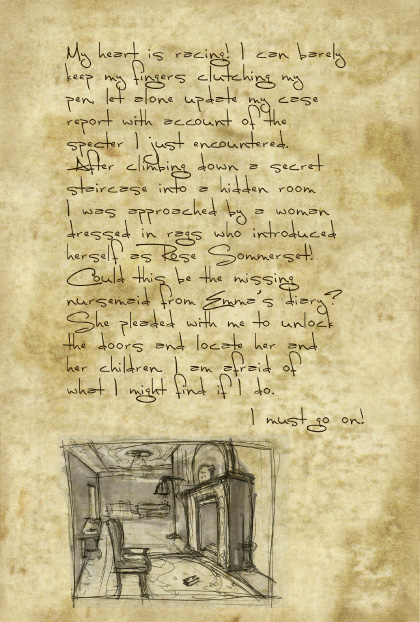 My heart is racing! I can barely
keep my fingers clutching my
pen, let alone update my case
report with account of the
specter I just encountered.
After climbing down a secret
staircase into a hidden room
I was approached by a woman
dressed in rags who introduced
herself as Rose Sommerset!
Could this be the missing
nursemaid from Emma's diary?
She pleaded with me to unlock
the doors and locate her and
her children. I am afraid of
what I might find if I do.
I must go on!